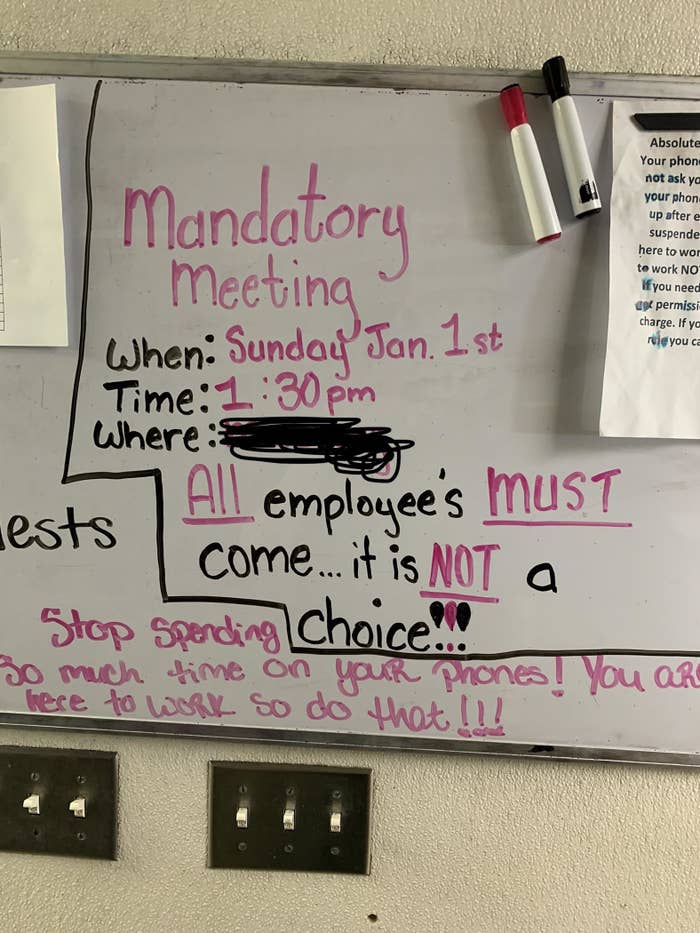 Mandatory
Meeting
When: Sunday Jan. 1st
Time: 1:30pm
Where:
All employee's MUST
come... it is NOT a
choice!!!
ests
Stop spending
so much time on your phones! You
here to work so do that!!!
Absolute
Your phon
not ask yo
your phon
up after e
suspende
here to wor
to work NO
if you need
permissi
charge. If yo
rule you ca